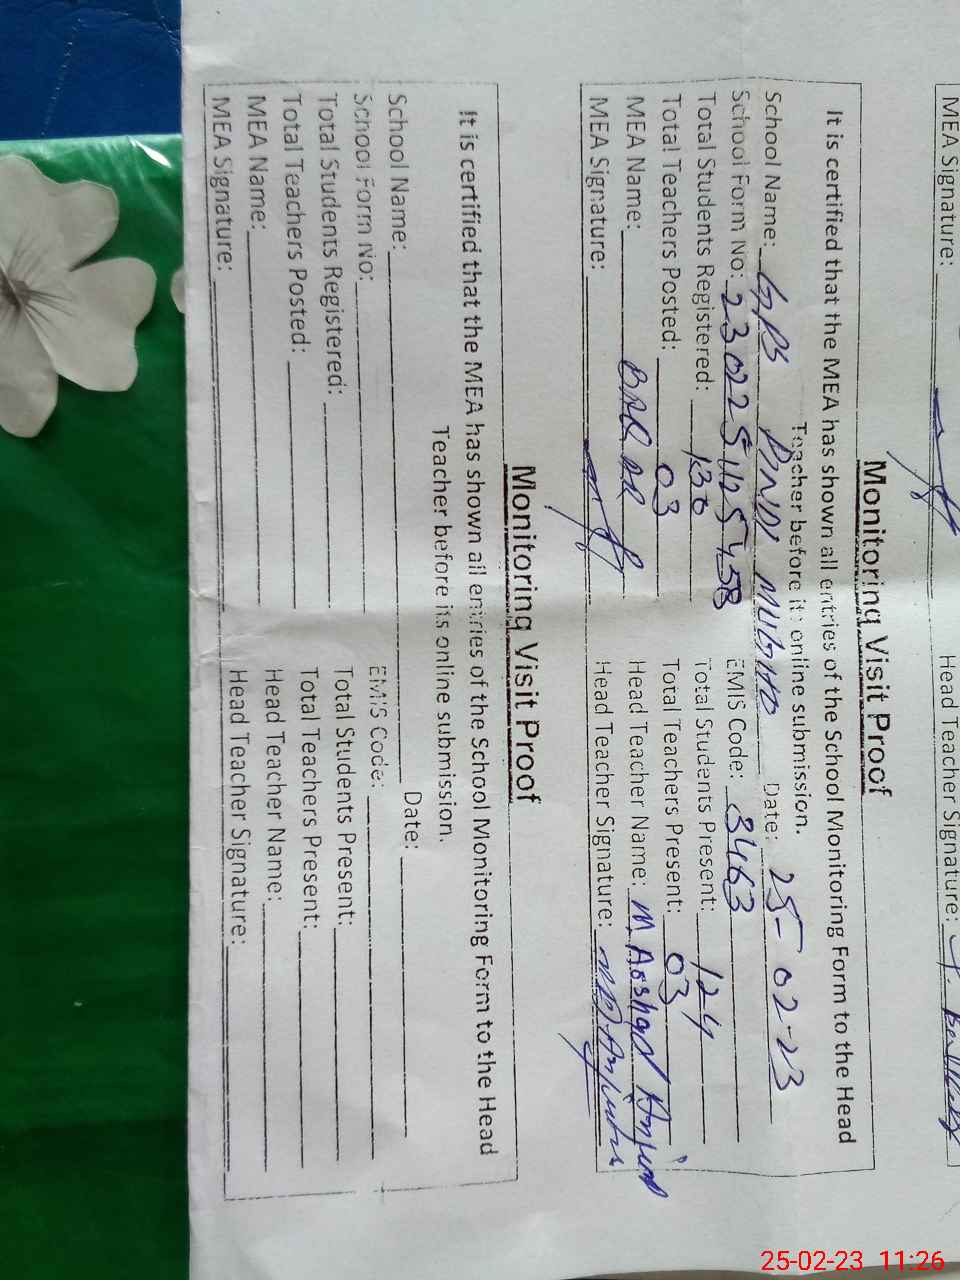 MEA Signature: Head Teacher Signature:
Monitoring Visit Proof
It is certified that the MEA has shown all entries of the School Monitoring Form to the Head
Teacher before its online submission.
School Name: GPS PINDI Date: 25-02-23
School Form No: EMIS Code: 3463
Total Students Registered: 130 Total Students Present: 124
Total Teachers Posted: 03 Total Teachers Present: 03
MEA Name: BABAR Head Teacher Name: M. Anjum
MEA Signature: Head Teacher Signature:
Monitoring Visit Proof
It is certified that the MEA has shown all entries of the School Monitoring Form to the Head
Teacher before its online submission.
School Name: Date:
School Form No: EMIS Code:
Total Students Registered: Total Students Present:
Total Teachers Posted: Total Teachers Present:
MEA Name: Head Teacher Name:
MEA Signature: Head Teacher Signature:
25-02-23 11:26